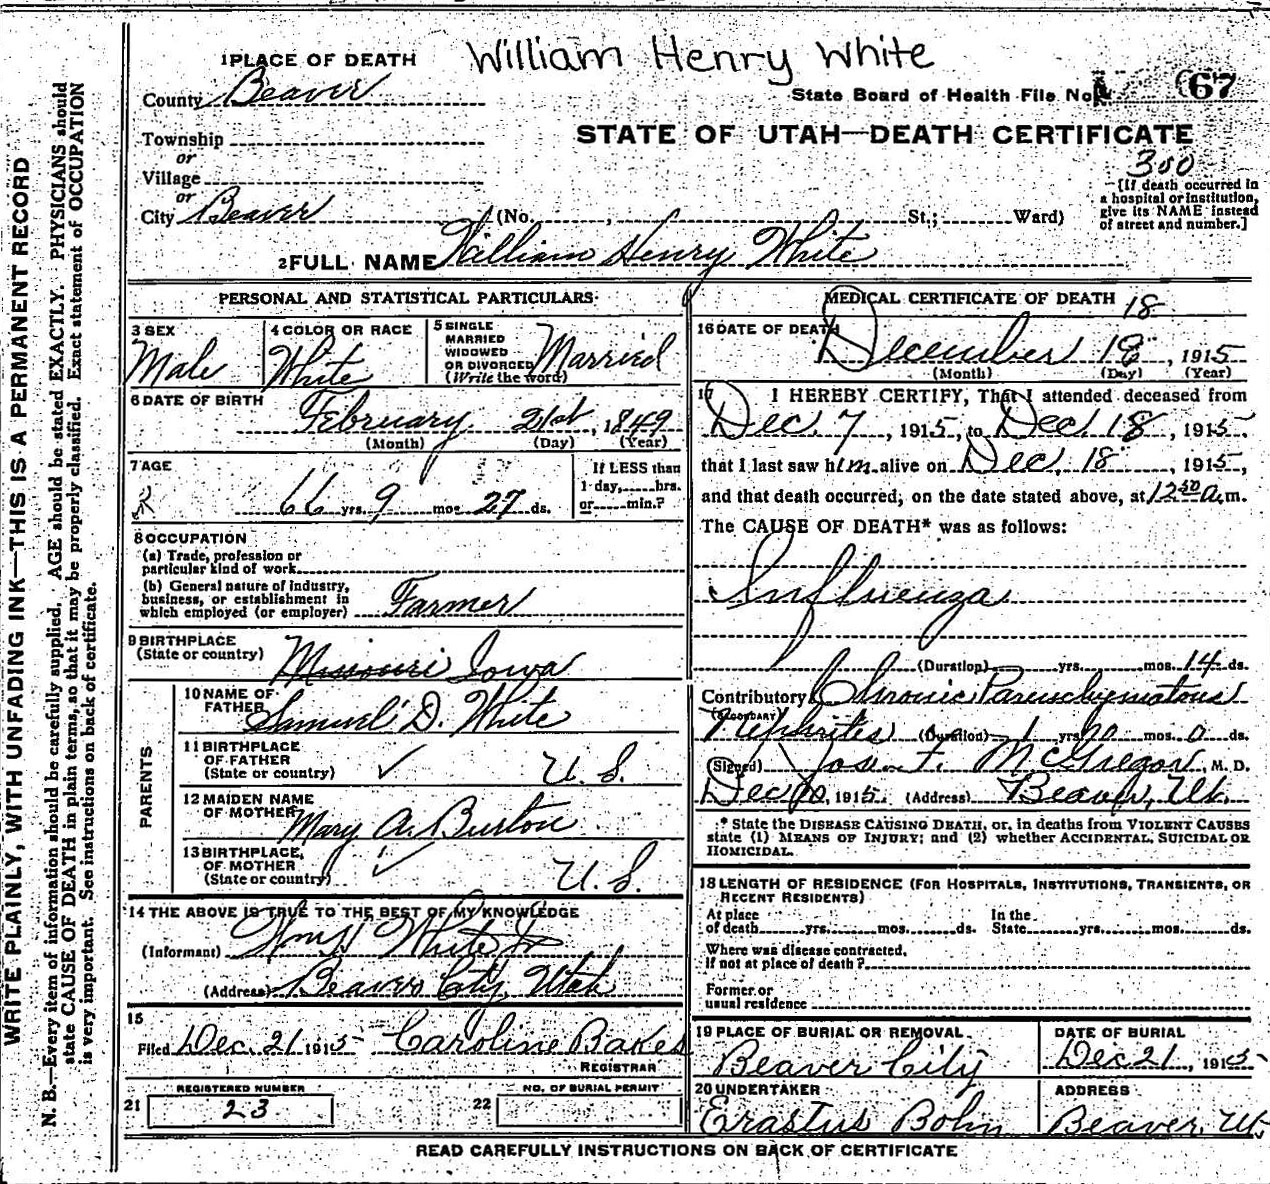 William Henry White
1 PLACE OF DEATH
County Beaver
State Board of Health File No. 67
STATE OF UTAH—DEATH CERTIFICATE
Township
or
Village
or
City Beaver (No. , St.; Ward)
300
[If death occurred in a hospital or institution, give its NAME instead of street and number.]
2 FULL NAME William Henry White
PERSONAL AND STATISTICAL PARTICULARS
3 SEX
Male
4 COLOR OR RACE
White
5 SINGLE MARRIED WIDOWED OR DIVORCED (Write the word)
Married
6 DATE OF BIRTH
February 21st, 1849
(Month) (Day) (Year)
7 AGE
66 yrs. 9 mos. 27 ds.
If LESS than 1 day, hrs. or min.?
8 OCCUPATION
(a) Trade, profession or particular kind of work
(b) General nature of industry, business, or establishment in which employed (or employer) Farmer
9 BIRTHPLACE (State or country)
Missouri Iowa
PARENTS
10 NAME OF FATHER
Samuel D. White
11 BIRTHPLACE OF FATHER (State or country) ✓ U.S.
12 MAIDEN NAME OF MOTHER
Mary A. Burton
13 BIRTHPLACE OF MOTHER (State or country) ✓ U.S.
14 THE ABOVE IS TRUE TO THE BEST OF MY KNOWLEDGE
(Informant) Wm H White Jr
(Address) Beaver City, Utah
15
Filed Dec. 21 1915 Caroline Bakes
REGISTRAR
REGISTERED NUMBER
21 23
NO. OF BURIAL PERMIT
22
MEDICAL CERTIFICATE OF DEATH
18
16 DATE OF DEATH
December 18, 1915
(Month) (Day) (Year)
17 I HEREBY CERTIFY, That I attended deceased from
Dec. 7, 1915, to Dec. 18, 1915,
that I last saw him alive on Dec. 18, 1915,
and that death occurred, on the date stated above, at 12 50 a.m.
The CAUSE OF DEATH* was as follows:
Influenza
(Duration) yrs. mos. 14 ds.
Contributory Chronic Parenchymatous
(SECONDARY)
Nephrites (Duration) 1 yrs. mos. 0 ds.
(Signed) Jos. F. McGregor, M. D.
Dec 20, 1915. (Address) Beaver, Ut.
* State the DISEASE CAUSING DEATH, or, in deaths from VIOLENT CAUSES
state (1) MEANS OF INJURY; and (2) whether ACCIDENTAL, SUICIDAL OR
HOMICIDAL.
18 LENGTH OF RESIDENCE (FOR HOSPITALS, INSTITUTIONS, TRANSIENTS, OR
RECENT RESIDENTS)
At place of death yrs. mos. ds. In the State yrs. mos. ds.
Where was disease contracted,
If not at place of death?
Former or
usual residence
19 PLACE OF BURIAL OR REMOVAL
Beaver City
DATE OF BURIAL
Dec 21, 1915
20 UNDERTAKER
Erastus Bohn
ADDRESS
Beaver, Ut.
READ CAREFULLY INSTRUCTIONS ON BACK OF CERTIFICATE
WRITE PLAINLY, WITH UNFADING INK—THIS IS A PERMANENT RECORD
N. B.—Every item of information should be carefully supplied. AGE should be stated EXACTLY. PHYSICIANS should
state CAUSE OF DEATH in plain terms, so that it may be properly classified. Exact statement of OCCUPATION
is very important. See instructions on back of certificate.